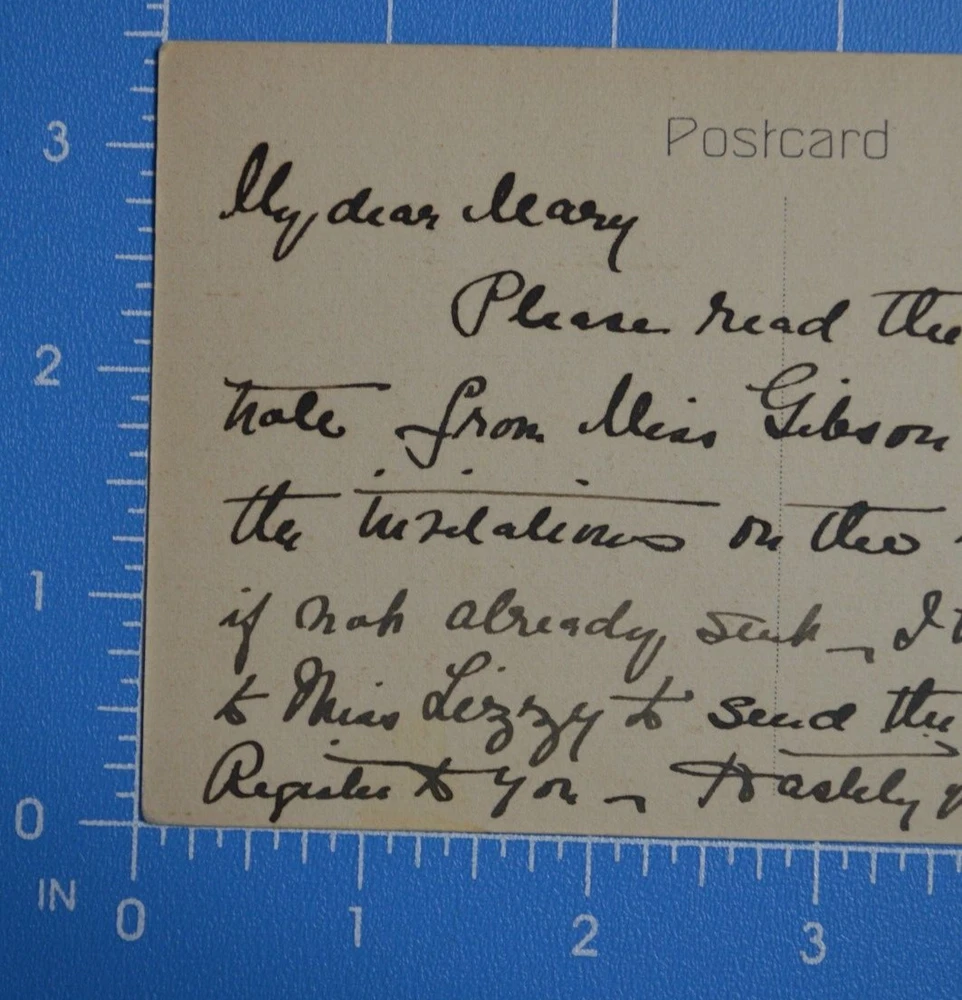 Postcard
My dear Mary
Please read the
note from Miss Gibson
the invitations on the
if not already sent – I
to Miss Lizzy to send the
Register to you – Hastily
3
2
1
0
IN
0 1 2 3